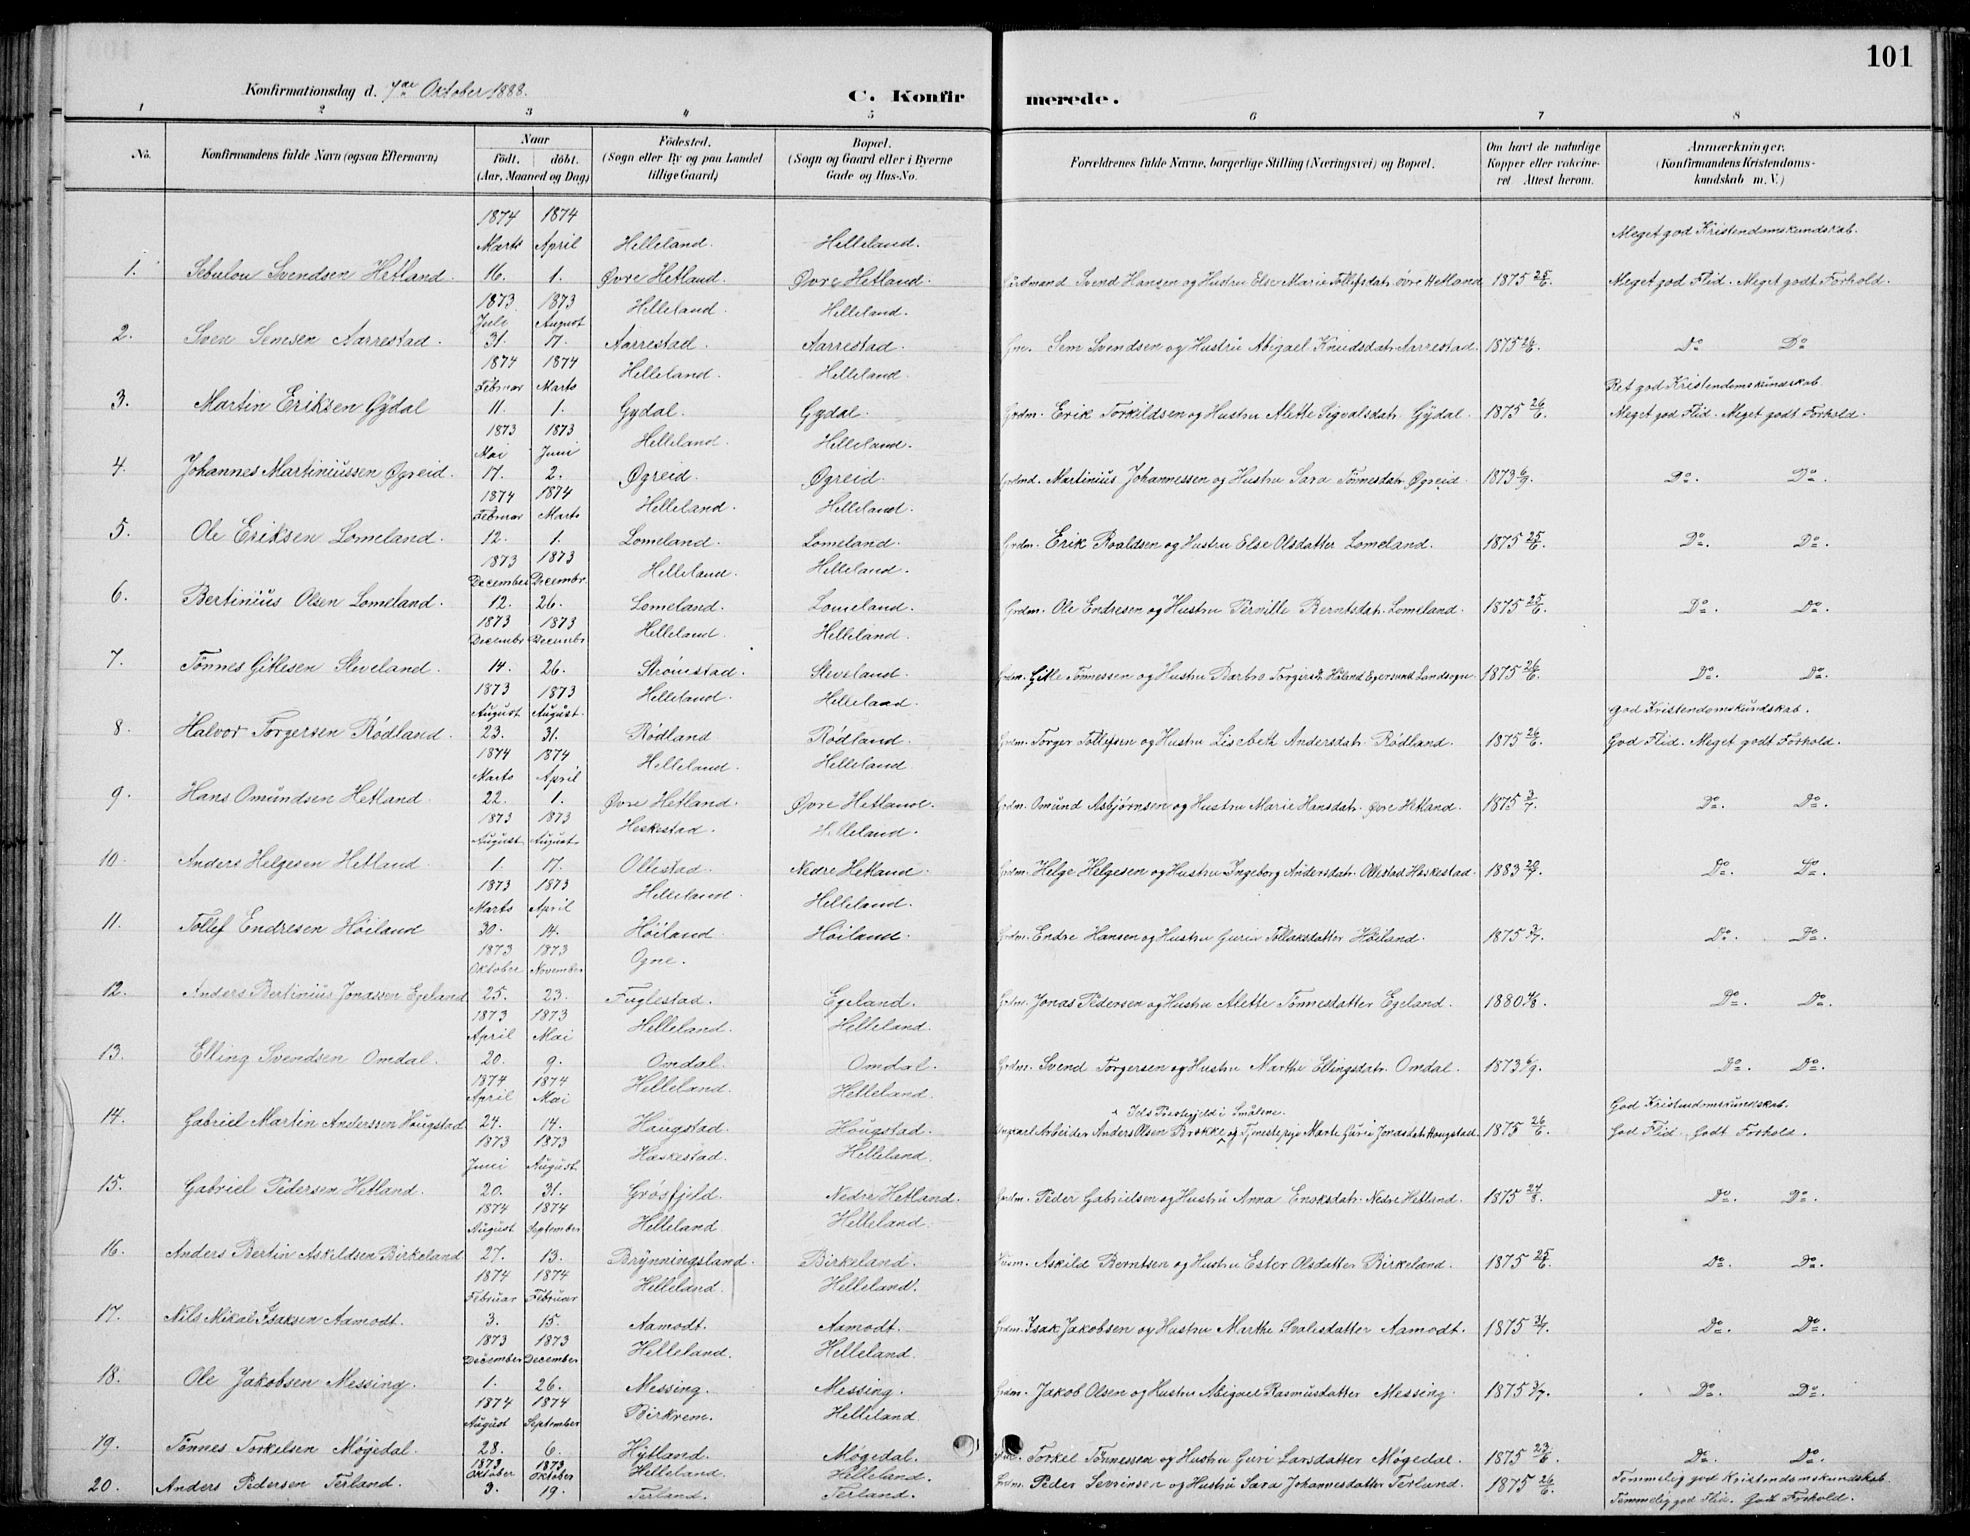 101
Konfirmationsdag d. 7de Oktober 1888.
C. Konfirmerede.
1 2 3 4 5 6 7 8
No. Konfirmandens fulde Navn (ogsaa Efternavn) Naar födt. döbt. (Aar, Maaned og Dag) Födested. (Sogn eller By og paa Landet tillige Gaard) Bopæl. (Sogn og Gaard eller i Byerne Gade og Hus-No. Forældrenes fulde Navne, borgerlige Stilling (Næringsvei) og Bopæl. Om havt de naturlige Kopper eller vakcineret Attest herom. Anmærkninger. (Konfirmandens Kristendomskundskab m. V.)
1874 1874
Marts April Helleland. Helleland. Meget god Kristendomskundskab.
1. Sebulon Svendsen Hetland. 16. 1. Øvre Hetland. Øvre Hetland. Gårdmand Svend Hansen og Hustru Else Marie Tollefsdatr. øvre Hetland 1875 25/6. Meget god Flid. Meget godt Forhold.
1873 1873 Helleland. Helleland.
Juli August
2. Sven Semsen Aarrestad. 31. 17. Aarrestad. Aarrestad. Gm. Sem Svendsen og Hustru Abigael Knudsdatr. Aarrestad. 1875 26/6. Do Do
1874 1874 Helleland. Helleland.
Februar Marts Ret god Kristendomskundskab.
3. Martin Eriksen Gydal 11. 1. Gydal. Gydal. Grdm. Erik Torkildsen og Hustru Alette Sigvalsdatr. Gydal. 1875 26/6. Meget god Flid. Meget godt Forhold.
1873 1873 Helleland. Helleland.
Mai Juni
4. Johannes Martiniussen Øgreid. 17. 2. Øgreid. Øgreid. Grdmd. Martinius Johannessen og Hustru Sara Tønnesdatr. Øgreid. 1873 6/9. Do. Do.
1874 1874 Helleland. Helleland.
Februar Marts
5. Ole Eriksen Lomeland. 12. 1. Lomeland. Lomeland. Grdm. Erik Roaldsen og Hustru Else Olsdatter Lomeland. 1875 25/6. Do. Do.
1873 1873 Helleland. Helleland.
December Decembr.
6. Bertinius Olsen Lomeland. 12. 26. Lomeland. Lomeland. Grdm. Ole Endresen og Hustru Pernille Berntsdatr. Lomeland. 1875 25/6. Do. Do.
1873 1873 Helleland. Helleland.
Decembr Decembr
7. Tønnes Gitlesen Sleveland. 14. 26. Strømstad. Sleveland. Grdm. Gitle Tønnessen og Hustru Barbro Torgersdr. Håland Egersund Landsogn. 1875 26/6. Do. Do.
1873 1873 Helleland. Helleland.
August August. God Kristendomskundskab.
8. Halvor Torgersen Rødland. 23. 31. Rødland Rødland. Grdm. Torger Tollefsen og Hustru Lisebeth Andersdatr. Rødland. 1875 26/6. God Flid. Meget godt Forhold.
1874 1874 Helleland. Helleland.
Marts April
9. Hans Omundsen Hetland. 22. 1. Øvre Hetland. Øvre Hetland. Grdm. Omund Asbjørnsen og Hustru Marie Hansdatr. Øvre Hetland. 1875 3/7. Do. Do.
1873 1873 Heskestad. Helleland.
August August
10. Anders Helgesen Hetland. 1. 17. Ollestad. Nedre Hetland. Grdm. Helge Helgesen og Hustru Ingeborg Andersdatr. Ollestad Heskestad. 1883 20/9. Do. Do.
1873 1873 Helleland. Helleland.
Marts April
11. Tollef Endresen Høiland 30. 14. Høiland. Høiland. Grdm. Endre Hansen og Hustru Guriæ Tollaksdatter Høiland. 1875 3/7. Do. Do.
1873 1873 Ogne.
Oktober November
12. Anders Bertinius Jonassen Egeland 25. 23. Fuglestad. Egeland. Grdm. Jonas Pedersen og Hustru Alette Tønnesdatter Egeland. 1880 4/8. Do. Do.
1873 1873 Helleland. Helleland.
April Mai
13. Elling Svendsen Omdal. 20. 9. Omdal. Omdal. Grdm. Svend Torgersen og Hustru Marthe Ellingsdatr. Omdal. 1873 6/9. Do. Do.
1874 1874 Helleland. Helleland.
April Mai God Kristendomskundskab.
14. Gabriel Martin Anderssen Haugstad 24. 14. Haugstad. Haugstad. Ungkarl Arbeider Anders Olsen Brække og Tjenestepige Marte Gurie Jonasdatr. Haugstad. 1875 26/6. God Flid. Godt Forhold.
1873 1873 Heskestad. Helleland.
Juni August
15. Gabriel Pedersen Hetland. 20. 31. Grøsfjeld. Nedre Hetland. Grdm. Peder Gabrielsen og Hustru Anna Enoksdatr. Nedre Hetland. 1875 24/8. Do. Do.
1874 1874 Helleland. Helleland.
August September
16. Anders Bertin Askildsen Birkeland 27. 13. Brynningsland. Birkeland. Husm. Askild Berntsen og Hustru Ester Olsdatter Birkeland. 1875 25/6. Do. Do.
1874 1874 Helleland. Helleland.
Februar Februar
17. Nils Mikal Isaksen Aamodt. 3. 15. Aamodt. Aamodt. Grdm. Isak Jakobsen og Hustru Marthe Svalisdatter Aamodt. 1875 3/7. Do. Do.
1873 1873 Helleland. Helleland.
December December
18. Ole Jakobsen Messing. 1. 26. Messing. Messing. Grdm. Jakob Olsen og Hustru Abigael Rasmusdatter Messing. 1875 3/7. Do. Do.
1874 1874 Birkrem. Helleland.
August September
19. Tønnes Torkelsen Møgedal. 28. 6. Hytland. Møgedal. Torkel Tønnessen og Hustru Guri Larsdatter Møgedal. 1875 23/6. Do. Do.
1873 1873 Helleland. Helleland.
Oktober Oktober Temmelig god Kristendomskundskab.
20. Anders Pedersen Terland. 3. 19. Terland. Terland. Grdm. Peder Sevrinsen og Hustru Sara Johannesdatter Terland. 1875 26/6. Temmelig god Flid. Godt Forhold.